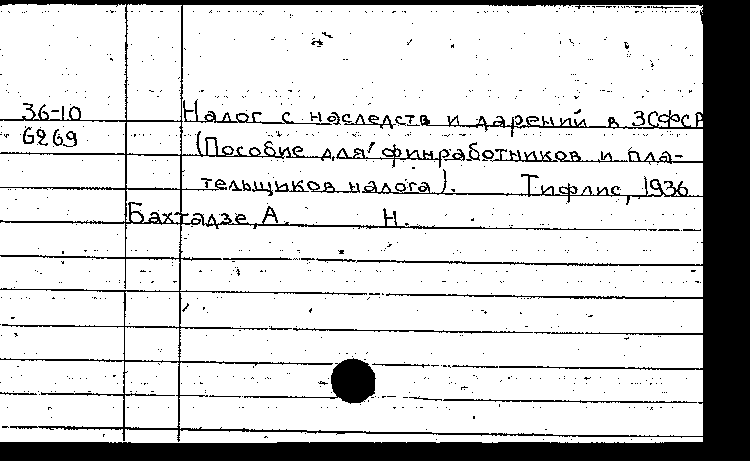 36-10 Налог с наследств и дарений в ЗСФСР
6269 (Пособие для финработников и пла-
тельщиков налога). Тифлис, 1936
Бахтадзе, А. Н.